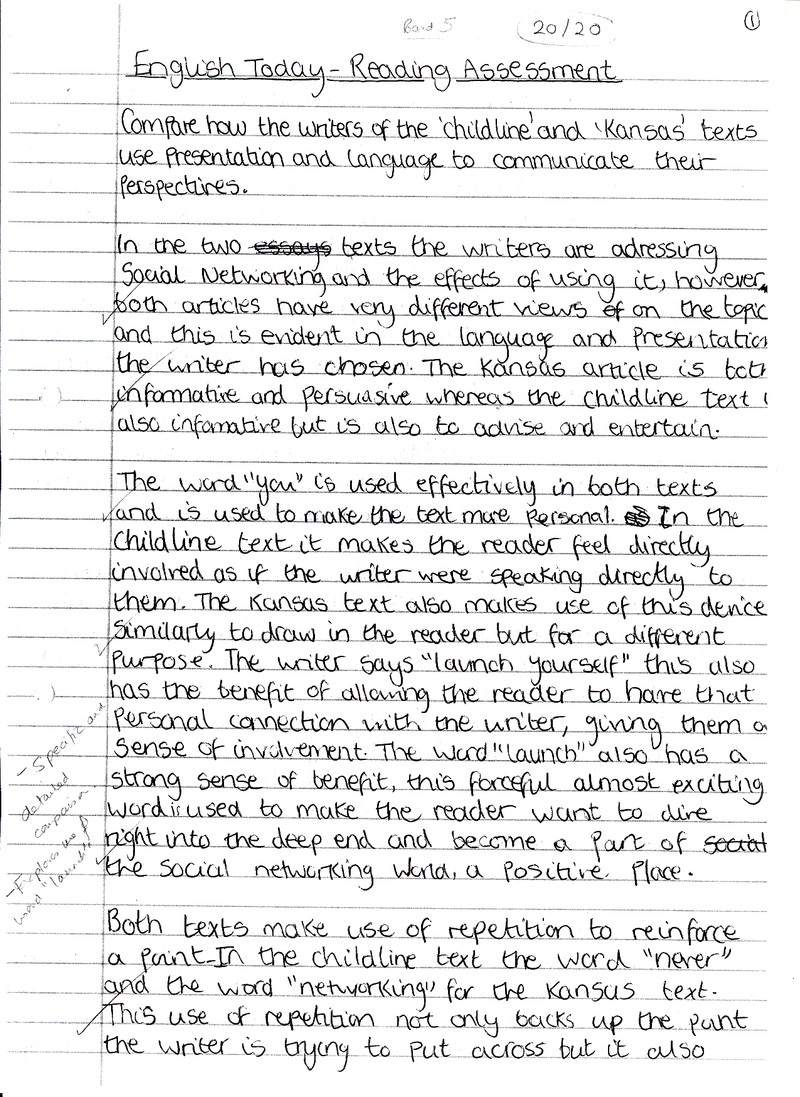 Band 5
20/20
1
English Today - Reading Assessment
Compare how the writers of the 'childline' and 'Kansas' texts
use Presentation and language to communicate their
perspectives.
In the two essays texts the writers are adressing
Social Networking and the effects of using it, however,
both articles have very different views of on the topic
and this is evident in the language and Presentation
the writer has chosen. The Kansas article is both
informative and persuasive whereas the childline text i
also infomative but is also to advise and entertain.
The word "you" is used effectively in both texts
and is used to make the text more personal. In the
Childline text it makes the reader feel directly
involved as if the writer were speaking directly to
them. The Kansas text also makes use of this device
similarly to draw in the reader but for a different
purpose. The writer says "launch yourself" this also
has the benefit of allowing the reader to have that
Personal connection with the writer, giving them a
sense of involvement. The word "launch" also has a
strong sense of benefit, this forceful almost exciting
word is used to make the reader want to dive
right into the deep end and become a part of social
the social networking world, a positive place.
- Specific and
detailed
comparison
- Explores use of
word "launch"
Both texts make use of repetition to reinforce
a point. In the childline text the word "never"
and the word "networking" for the Kansas text.
This use of repetition not only backs up the point
the writer is trying to put across but it also